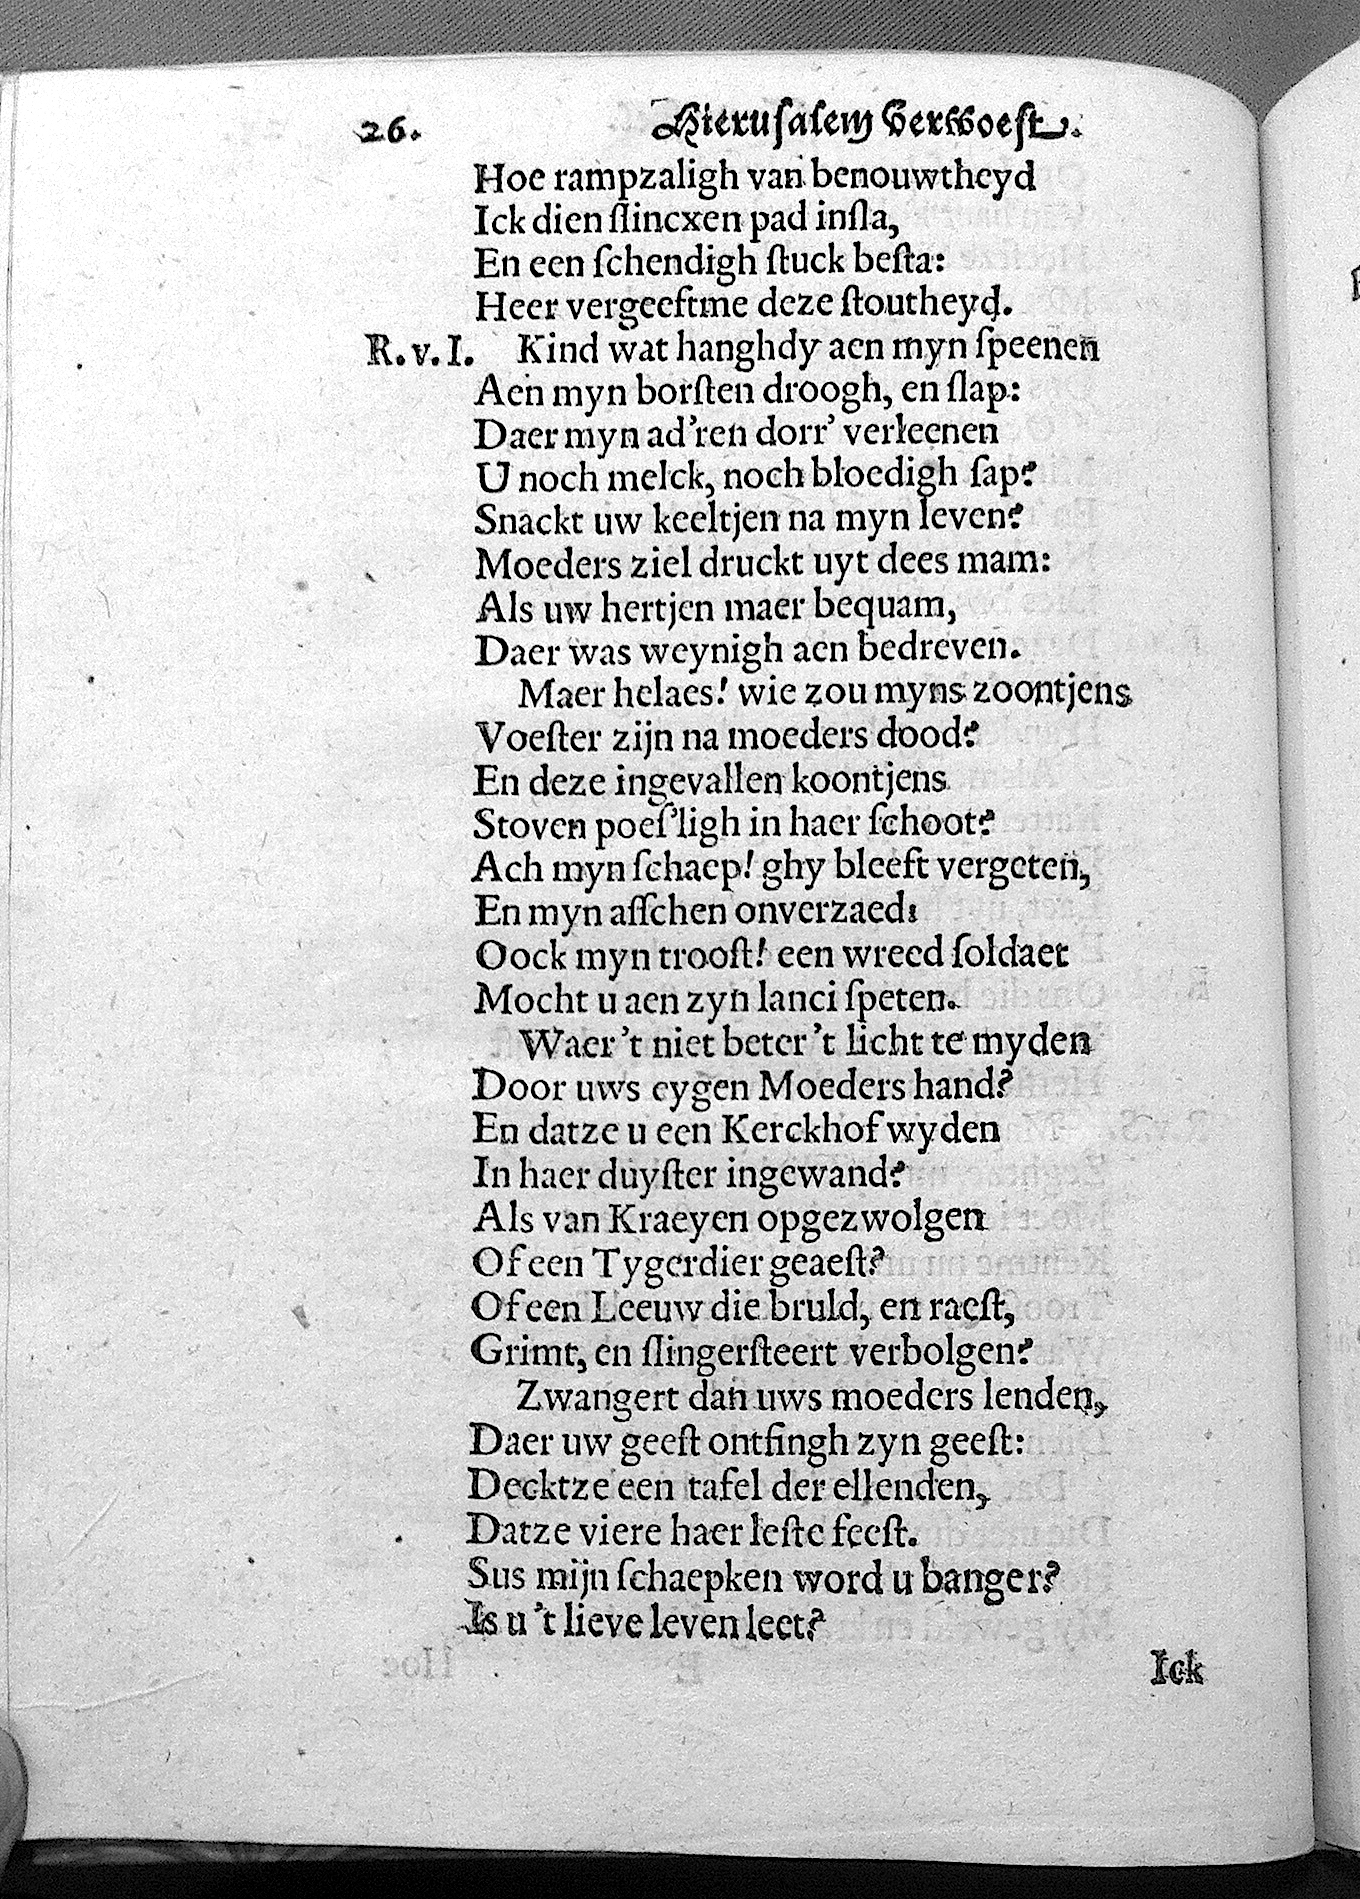 26. Hierusalem verwoest.
Hoe rampzaligh van benouwtheyd
Ick dien slincxen pad insla,
En een schendigh stuck besta:
Heer vergeeftme deze stoutheyd.
R. v. I. Kind wat hanghdy aen myn speenen
Aen myn borsten droogh, en slap:
Daer myn ad'ren dorr' verleenen
U noch melck, noch bloedigh sap?
Snackt uw keeltjen na myn leven?
Moeders ziel druckt uyt dees mam:
Als uw hertjen maer bequam,
Daer was weynigh aen bedreven.
Maer helaes! wie zou myns zoontjens
Voester zijn na moeders dood?
En deze ingevallen koontjens
Stoven poes'ligh in haer schoot?
Ach myn schaep! ghy bleeft vergeten,
En myn asschen onverzaed:
Oock myn troost! een wreed soldaet
Mocht u aen zyn lanci speten.
Waer 't niet beter 't licht te myden
Door uws eygen Moeders hand?
En datze u een Kerckhof wyden
In haer duyster ingewand?
Als van Kraeyen opgezwolgen
Of een Tygerdier geaest?
Of een Leeuw die bruld, en raest,
Grimt, en slingersteert verbolgen?
Zwangert dan uws moeders lenden,
Daer uw geest ontfingh zyn geest:
Decktze een tafel der ellenden,
Datze viere haer leste feest.
Sus mijn schaepken word u banger?
Is u 't lieve leven leet?
Ick